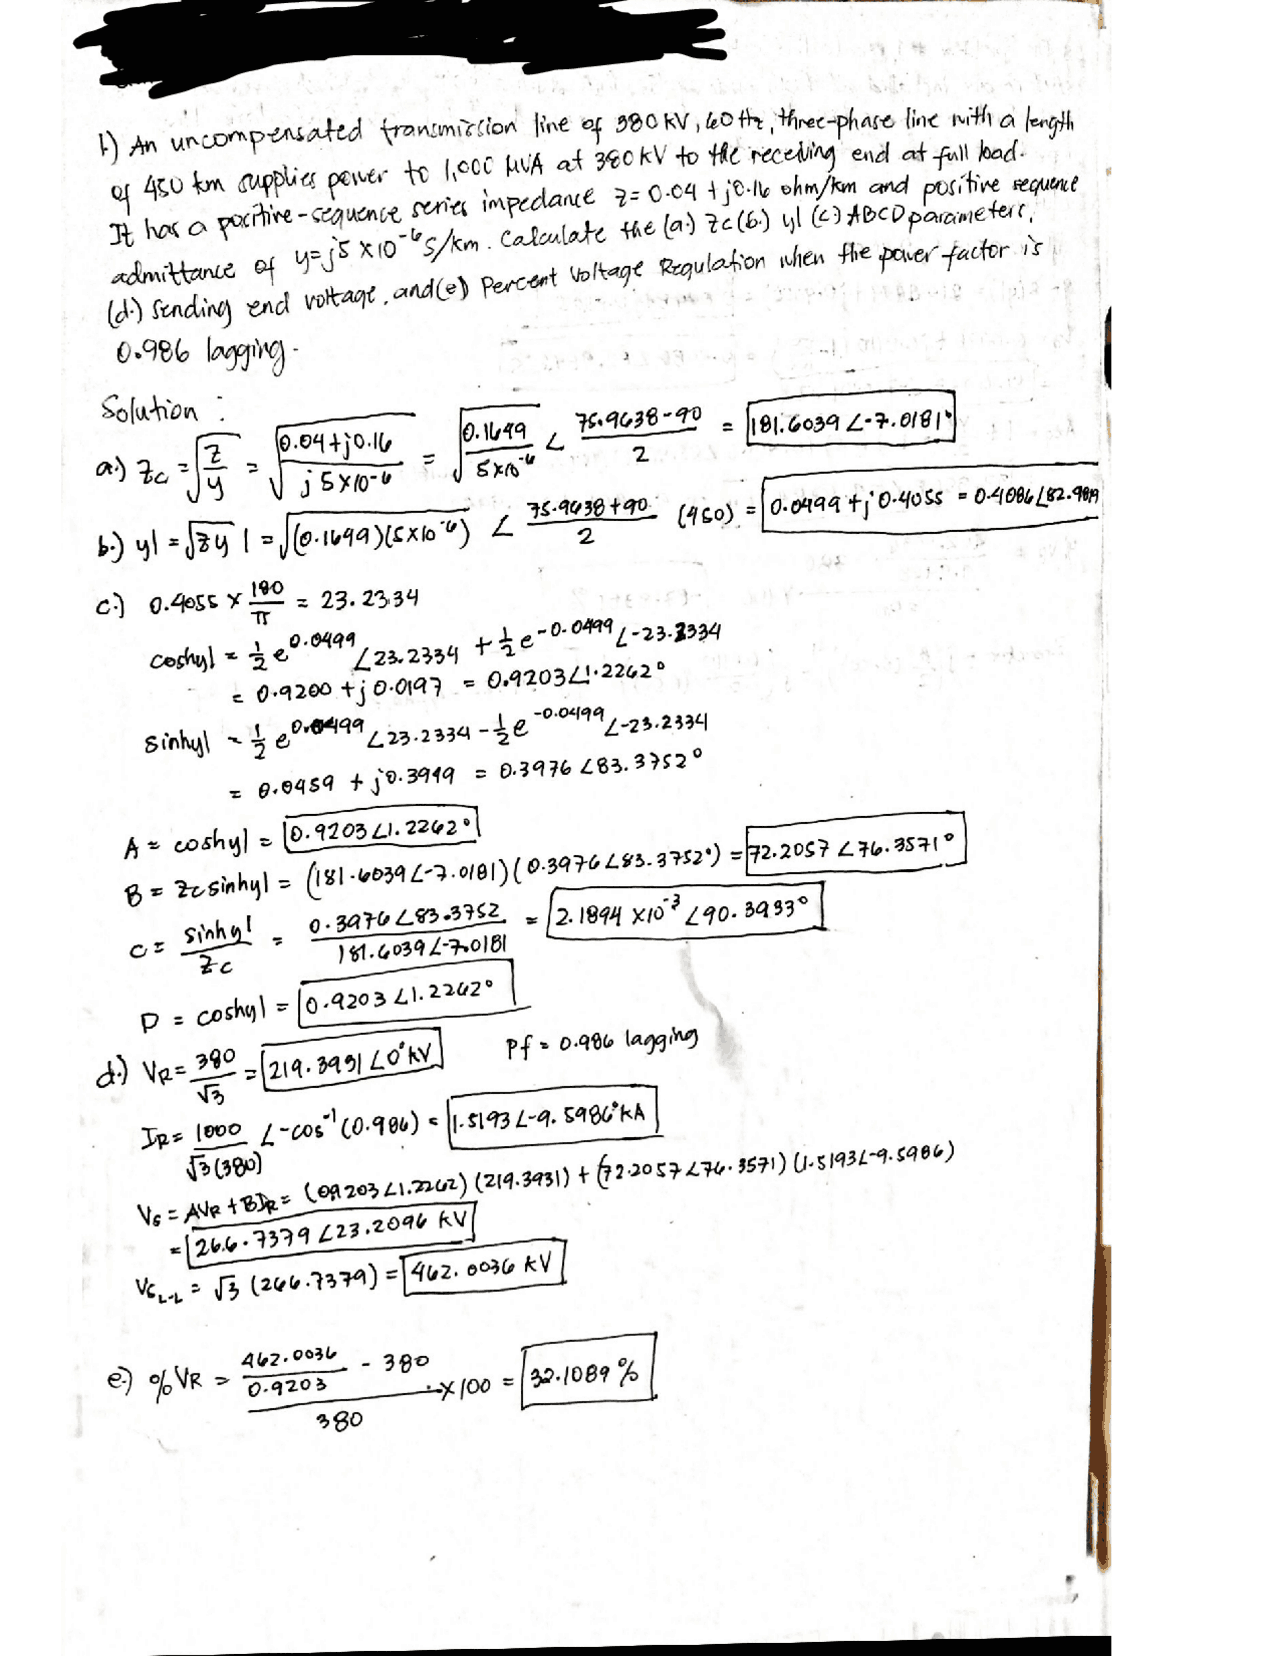 1.) An uncompensated transmission line of 380 kV, 60 Hz, three-phase line with a length
of 450 km supplies power to 1,000 MVA at 380 kV to the receiving end at full load.
It has a positive-sequence series impedance z = 0.04 + j0.16 ohm/km and positive sequence
admittance of y = j5 × 10^-6 S/km. Calculate the (a.) Zc (b.) γl (c.) ABCD parameters,
(d.) Sending end voltage, and (e) Percent Voltage Regulation when the power factor is
0.986 lagging.
Solution :
a.) Zc = √(z/y) = √((0.04 + j0.16)/(j5×10^-6)) = √(0.1649/(5×10^-6)) ∠ (75.9638-90)/2 = 181.6039 ∠-7.0181°
b.) γl = √(zy) l = √((0.1649)(5×10^-6)) ∠ (75.9638+90)/2 (450) = 0.0499 + j0.4055 = 0.4086 ∠82.9819
c.) 0.4055 × 180/π = 23.2334
coshγl = ½ e^0.0499 ∠23.2334 + ½ e^-0.0499 ∠-23.2334
= 0.9200 + j0.0197 = 0.9203∠1.2262°
sinhγl = ½ e^0.0499 ∠23.2334 - ½ e^-0.0499 ∠-23.2334
= 0.0459 + j0.3949 = 0.3976 ∠83.3752°
A = coshγl = 0.9203 ∠1.2262°
B = Zc sinhγl = (181.6039 ∠-7.0181)(0.3976 ∠83.3752°) = 72.2057 ∠76.3571°
C = sinhγl/Zc = 0.3976 ∠83.3752/181.6039 ∠-7.0181 = 2.1894 ×10^-3 ∠90.3933°
D = coshγl = 0.9203 ∠1.2262°
d.) VR = 380/√3 = 219.3931 ∠0° kV Pf = 0.986 lagging
IR = 1000/√3(380) ∠-cos^-1 (0.986) = 1.5193 ∠-9.5986° kA
Vs = AVR + BIR = (0.9203 ∠1.2262)(219.3931) + (72.2057 ∠76.3571)(1.5193∠-9.5986)
= 266.7379 ∠23.2096 kV
Vs L-L = √3 (266.7379) = 462.0036 kV
e.) % VR = (462.0036/0.9203 - 380)/380 × 100 = 32.1089 %